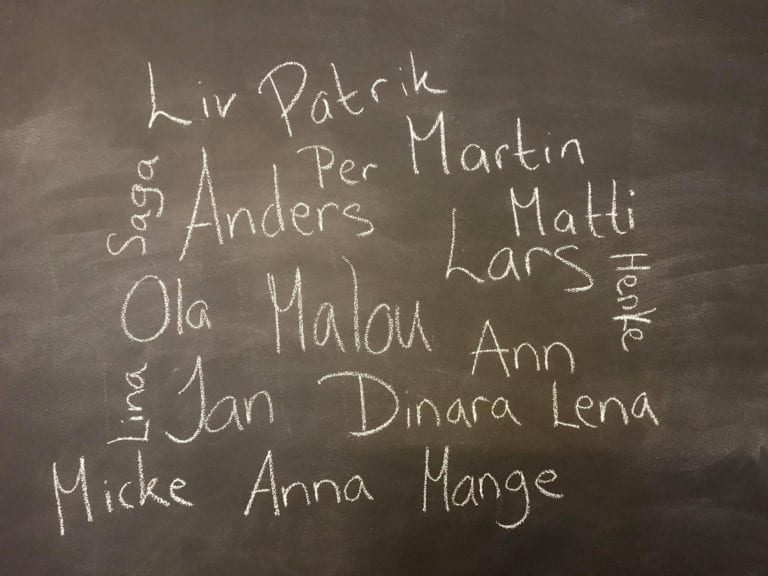 Liv Patrik
Per Martin
Saga
Anders
Matti
Lars
Henke
Ola Malou
Ann
Lina
Jan Dinara Lena
Micke Anna Mange